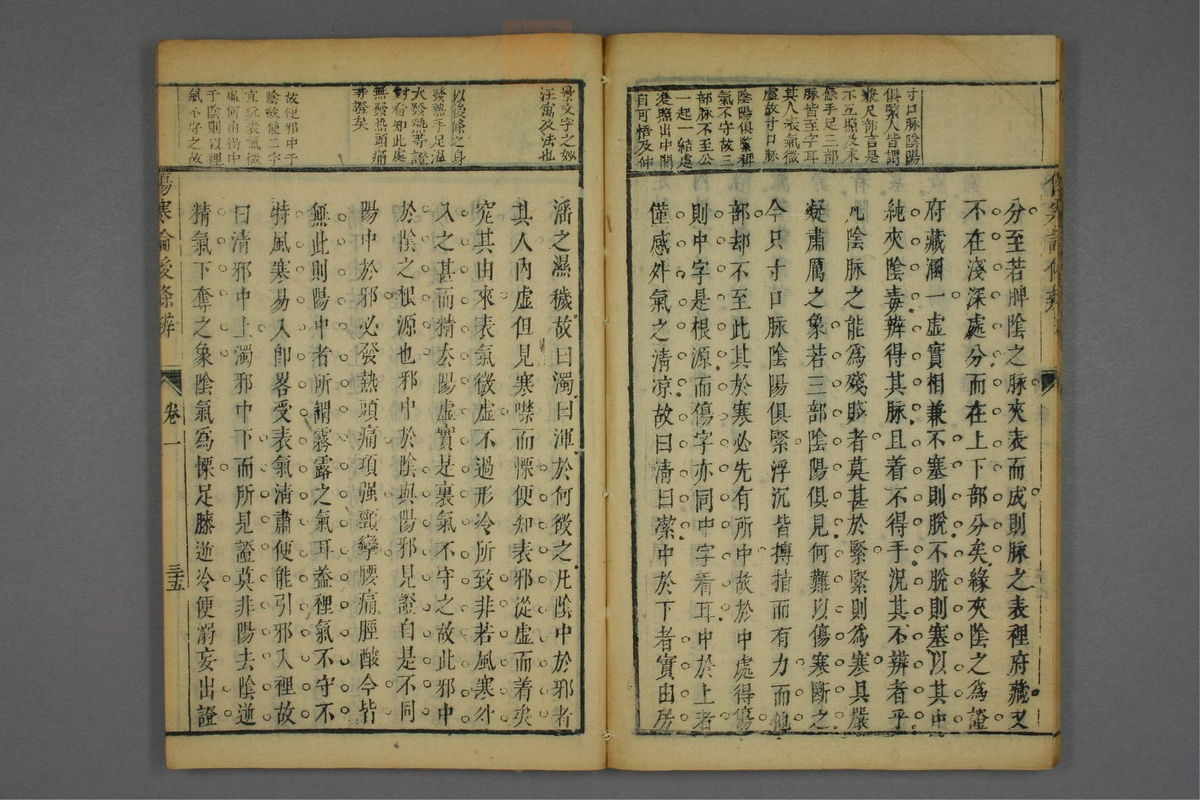 寸口脉陰陽
俱緊人皆謂
兼尺部言是
不互照及末
條手足三部
脉皆至字耳
其人表氣微
虛故寸口脉
陰陽俱緊裡
氣不守故三
部脉不至公
一起一結處
雙照出中間
自可悟及仲
分至若脾陰之脉夾表而成則脉之表裡府藏又
不在淺深處分而在上下部分矣緣夾陰之為證
府藏溷一虛實相兼不塞則脫不脫則塞以其中
純夾陰毒辨得其脉且着不得手況其不辨者乎
凡陰脉之能為殘賊者莫甚於緊緊則為寒具嚴
凝肅厲之象若三部陰陽俱見何難以傷寒斷之
今只寸口脉陰陽俱緊浮沉皆搏指而有力而他
部却不至此其於寒必先有所中故於中處得傷
則中字是根源而傷字亦同中字看耳中於上者
僅感外氣之清凉故曰清曰潔中於下者實由房
景文字之妙
汪寓及法也
以後條之身
發熱手足溫
大發熱等證
對看知此處
無發熱頭痛
等證矣
故使邪中于
陰故使二字
宜玩表氣微
虛何由得中
于陰則以裡
氣不守之故
傷寒論後條辨
卷一
三五
滛之濕穢故曰濁曰渾於何徵之凡陰中於邪者
其人內虛但見寒噤而慄便知表邪從虛而着矣
究其由來表氣微虛不過形冷所致非若風寒外
入之甚而精去陽虛實是裏氣不守之故此邪中
於陰之根源也邪中於陰與陽邪見證自是不同
陽中於邪必發熱頭痛項强頸攣腰痛脛酸今皆
無此則陽中者所謂霧露之氣耳蓋裡氣不守不
特風寒易入卽畧受表氣清肅便能引邪入裡故
曰清邪中上濁邪中下而所見證莫非陽去陰逝
精氣下奪之象陰氣為慄足膝逝冷便溺妄出證